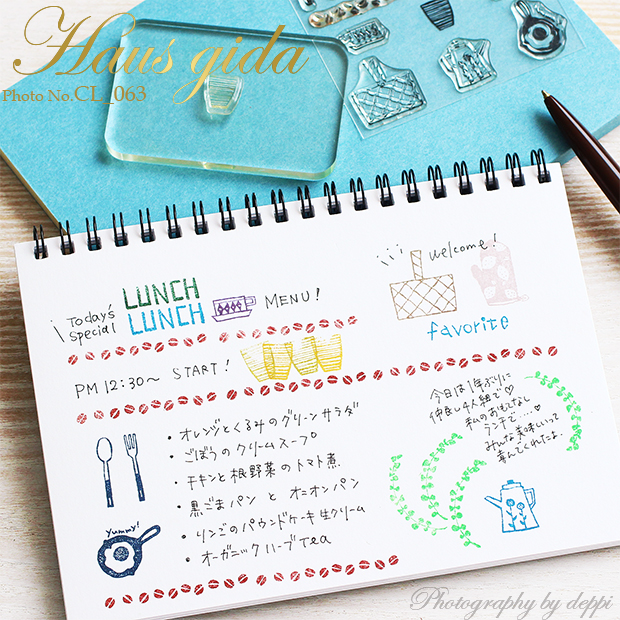 Haus gida
Photo No.CL_063
Today's Special LUNCH
LUNCH MENU!
welcome!
favorite
PM 12:30〜 START!
・オレンジとくるみのグリーンサラダ
・ごぼうのクリームスープ
・チキンと根野菜のトマト煮
・黒ごまパン と オニオンパン
・リンゴのパウンドケーキ生クリーム
・オーガニックハーブTea
yummy!
今日は1年ぶりに
仲良し4人組で♡
私のおもてなし
ランチで....♡
みんな美味いって
喜んでくれたよ。
Photography by deppi